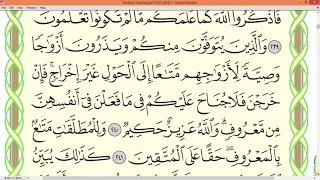 فَاذْكُرُوا اللَّهَ كَمَا عَلَّمَكُم مَّا لَمْ تَكُونُوا تَعْلَمُونَ
﴿٢٣٩﴾ وَالَّذِينَ يُتَوَفَّوْنَ مِنكُمْ وَيَذَرُونَ أَزْوَاجًا
وَصِيَّةً لِّأَزْوَاجِهِم مَّتَاعًا إِلَى الْحَوْلِ غَيْرَ إِخْرَاجٍ ۚ فَإِنْ
خَرَجْنَ فَلَا جُنَاحَ عَلَيْكُمْ فِي مَا فَعَلْنَ فِي أَنفُسِهِنَّ
مِن مَّعْرُوفٍ ۗ وَاللَّهُ عَزِيزٌ حَكِيمٌ ﴿٢٤٠﴾ وَلِلْمُطَلَّقَاتِ مَتَاعٌ
بِالْمَعْرُوفِ ۖ حَقًّا عَلَى الْمُتَّقِينَ ﴿٢٤١﴾ كَذَٰلِكَ يُبَيِّنُ